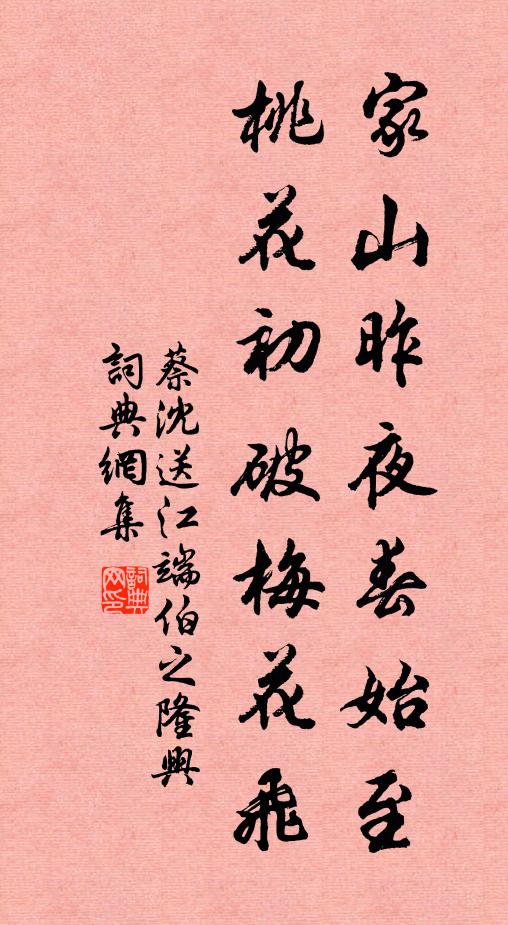 家山昨夜春始至
桃花初破梅花飛
蔡沈送江端伯之隆興
詞典網集
詞典网印